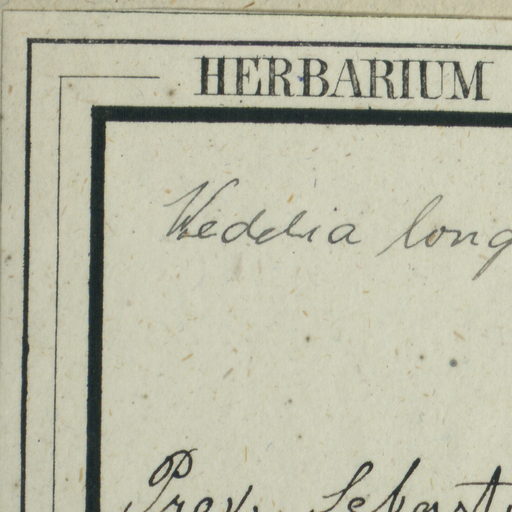 HERBARIUM
Wedelia long
Prov.